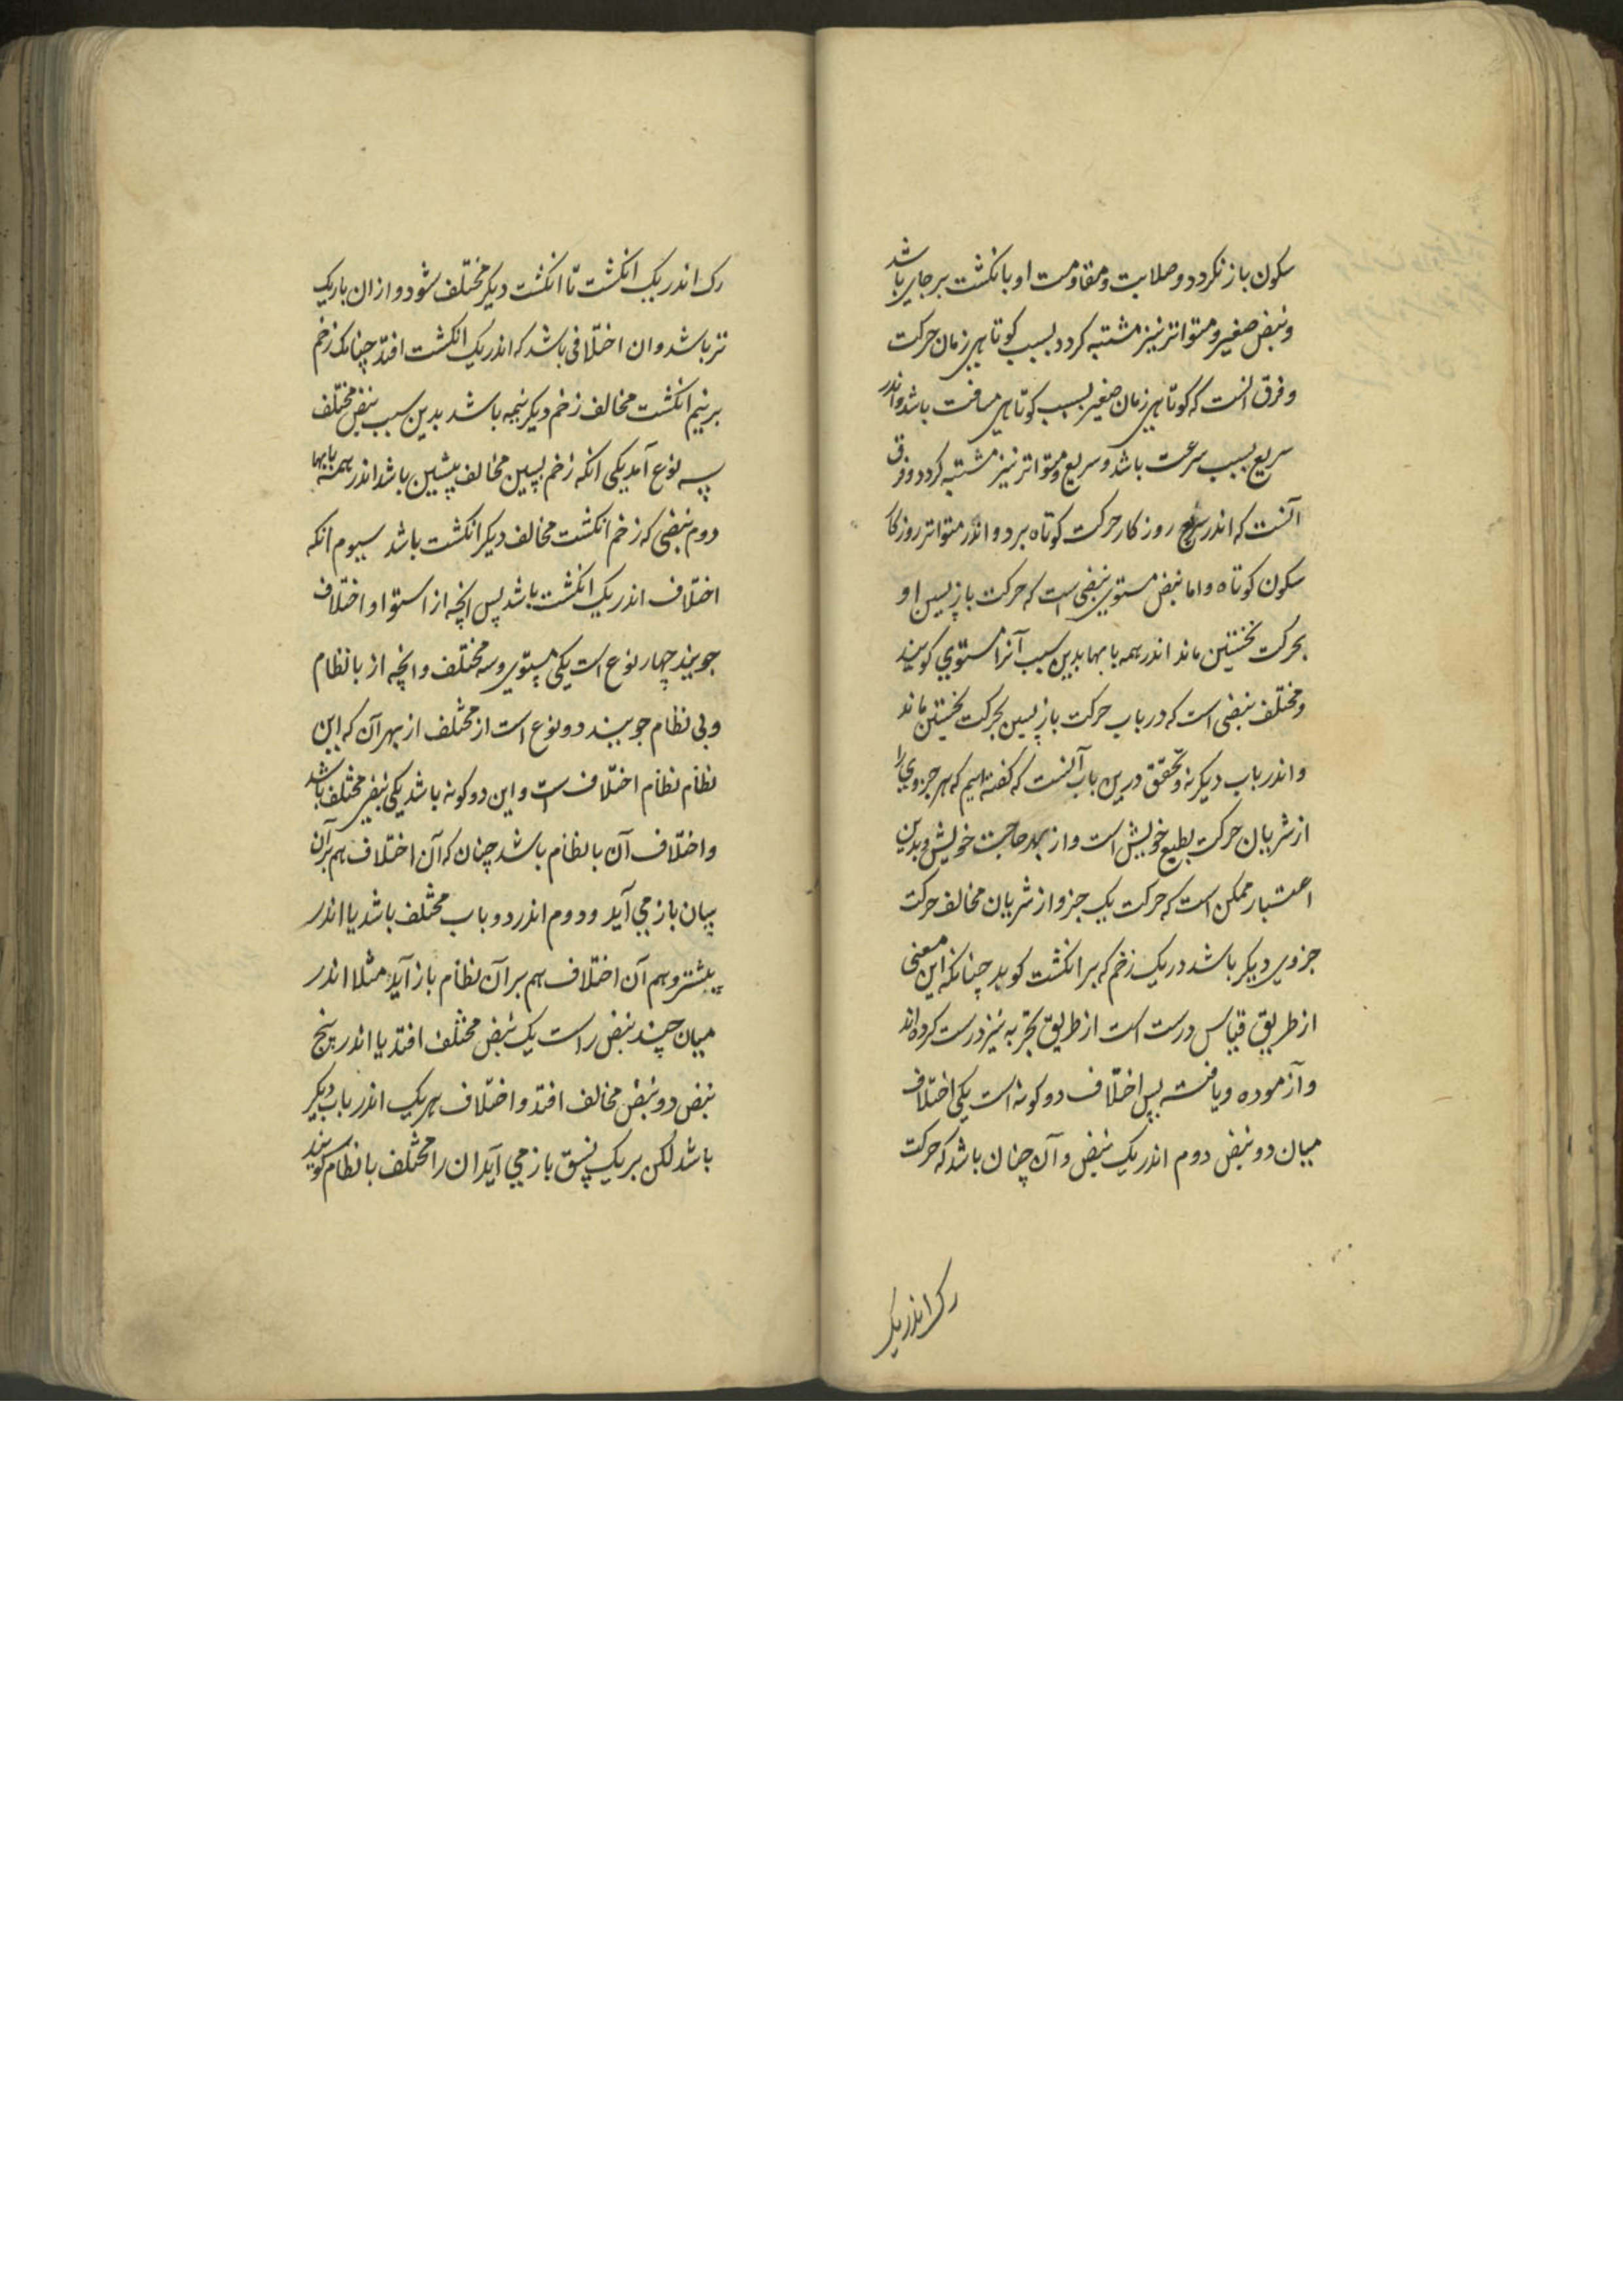 سکون باز نکردد و صلابت و مقاومت او با نکشت بر جای باشد
و نبض صغیر و متواتر نیز مشتبه کردد بسبب کوتاهی زمان حرکت
و فرق انست که کوتاهی زمان صغیر بسبب کوتاهی مسافت باشد و اندر
سریع بسبب سرعت باشد و سریع و متواتر نیز مشتبه کردد و فرق
آنست که اندر سریع روزکار حرکت کوتاه برد و اندر متواتر روزکار
سکون کوتاه و اما نبض مستوی نبضی است که حرکت بازپسین او
بحرکت نخستین ماند اندر همه بابها بدین سبب آنرا مستوی کویند
و مختلف نبضی است که در باب حرکت بازپسین بحرکت نخستین ماند
و اندر باب دیکر نه و تحقق درین باب آنست که کفته ایم که هر جزوی را
از شریان حرکت بطبع خویش است و از بهر حاجت خویش و بدین
اعتبار ممکن است که حرکت یک جزو از شریان مخالف حرکت
جزوی دیکر باشد در یک زخم که بر انکشت کوبد چنانکه این معنی
از طریق قیاس درست است از طریق تجربه نیز درست کرده اند
و آزموده و یافته پس اختلاف دو کونه است یکی اختلاف
میان دو نبض دوم اندر یک نبض و آن چنان باشد که حرکت
رک اندر یک
رک اندر یک انکشت تا انکشت دیکر مختلف شود و از ان باریک
تر باشد و ان اختلافی باشد که اندر یک انکشت افتد چنانک زخم
برنیم انکشت مخالف زخم دیکر نیمه باشد بدین سبب نبض مختلف
سه نوع آمد یکی انکه زخم پسین مخالف پیشین باشد اندر همه بابها
دوم نبضی که زخم انکشت مخالف دیکر انکشت باشد سیوم انکه
اختلاف اندر یک انکشت باشد پس انچه از استوا و اختلاف
جویند چهار نوع است یکی مستوی و سه مختلف و انچه از با نظام
و بی نظام جویند دو نوع است از مختلف از بهر آن که این
نظام نظام اختلاف است و این دو کونه باشد یکی نبض مختلف باشد
و اختلاف آن با نظام باشد چنان که آن اختلاف هم بر آن
سان باز می آید و دوم اندر دو باب مختلف باشد یا اندر
بیشتر و هم آن اختلاف هم بر آن نظام باز آید مثلا اندر
میان چند نبض راست یک نبض مختلف افتد یا اندر پنج
نبض دو نبض مخالف افتد و اختلاف هر یک اندر باب دیکر
باشد لکن بر یک نسق باز می آید ان را مختلف با نظام کویند